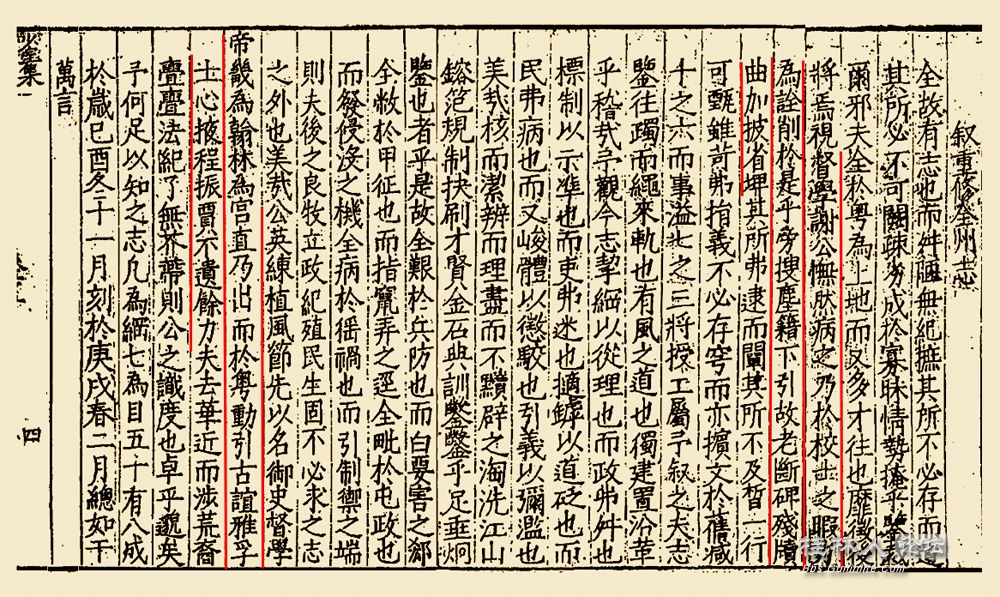 叙重修全州志
全故有志也而舛陋無紀摭其所不必存而
其所必不可闕疎易成於寡昧情勢掩乎
爾邪夫全於粤為上地而又多才往也靡徵後
將焉視督學謝公憮然病之乃於校士之暇
為詮削於是乎旁搜塵籍下引故老斷碑殘牘
曲加披省埤其所弗逮而闡其所不及晳一行
可甄雖苛弗捐義不必存雖雩而亦擯文於舊減
十之六而事溢七之三將授工屬予叙之夫志
鑒往躅而繩來軌也有風之道也獨建置沿革
乎稽哉予觀今志挈綱以從理也而政弗舛也
標制以示准也而吏弗迷也摘罅以道砭也而
民弗病也而又峻體以懲駮也引義以彌濫也
美哉核而潔辨而理盡而不黷辟之淘洗江山
鎔笵規制抉刷才賢金石典訓鑿鑿乎足垂炯
鑒也者乎是故全艱於兵防也而白要害之鄉
全敝於甲征也而指竄弄之逕全毗於屯政也
而發侵沒之機全病於徭禍也而引制禦之端
則夫後之良牧立政紀殖民生固不必求之志
之外也美哉公英練植風節先以名御史督學
帝畿為翰林為宮直乃出而於粤動引古誼雅孚
士心掖程振賈不遺餘力夫去華近而涉荒裔
亹亹法紀了無芥蔕則公之識度也卓乎邈矣
予何足以知之志凡為綱七為目五十有八成
於歲己酉冬十一月刻於庚戌春二月總如干
萬言
集一
四
桂林人论坛
bbs.guilinlife.com